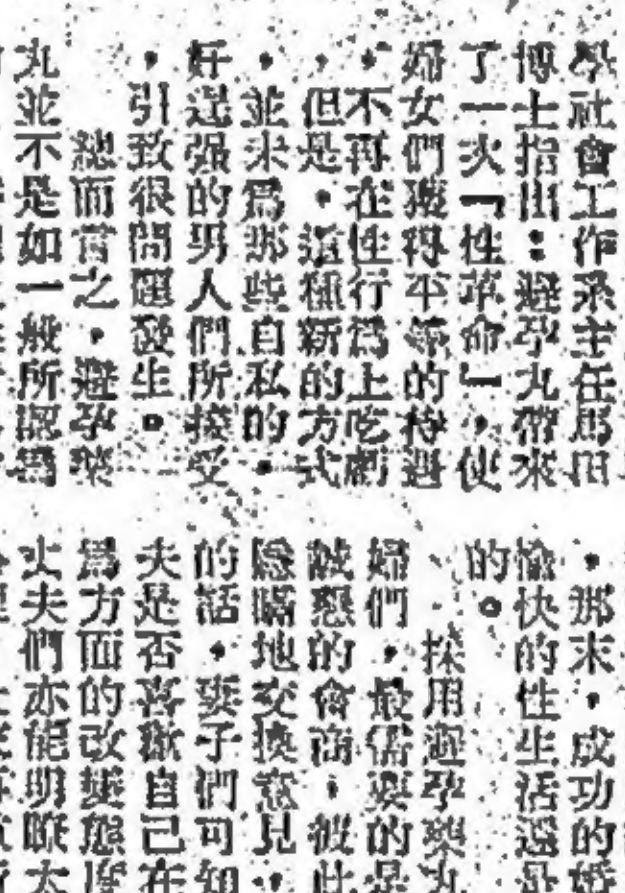 學社會工作系主任馬田
博士指出：避孕丸帶來
了一次「性革命」，使
婦女們獲得平等的待遇
，不再在性行為上吃虧
但是，這種新的方式
，並未為那些自私的，
奸逞强的男人們所接受
，引致很問題發生。
總而言之，避孕藥
丸並不是如一般所認為
，那末，成功的婚
愉快的性生活還是
的。
採用避孕藥丸
婦們，最需要的是
誠懇的會商，彼此
隱瞞地交換意見，
的話，妻子們可如
夫是否喜歡自己在
為方面的改變態度
丈夫們亦能明瞭太